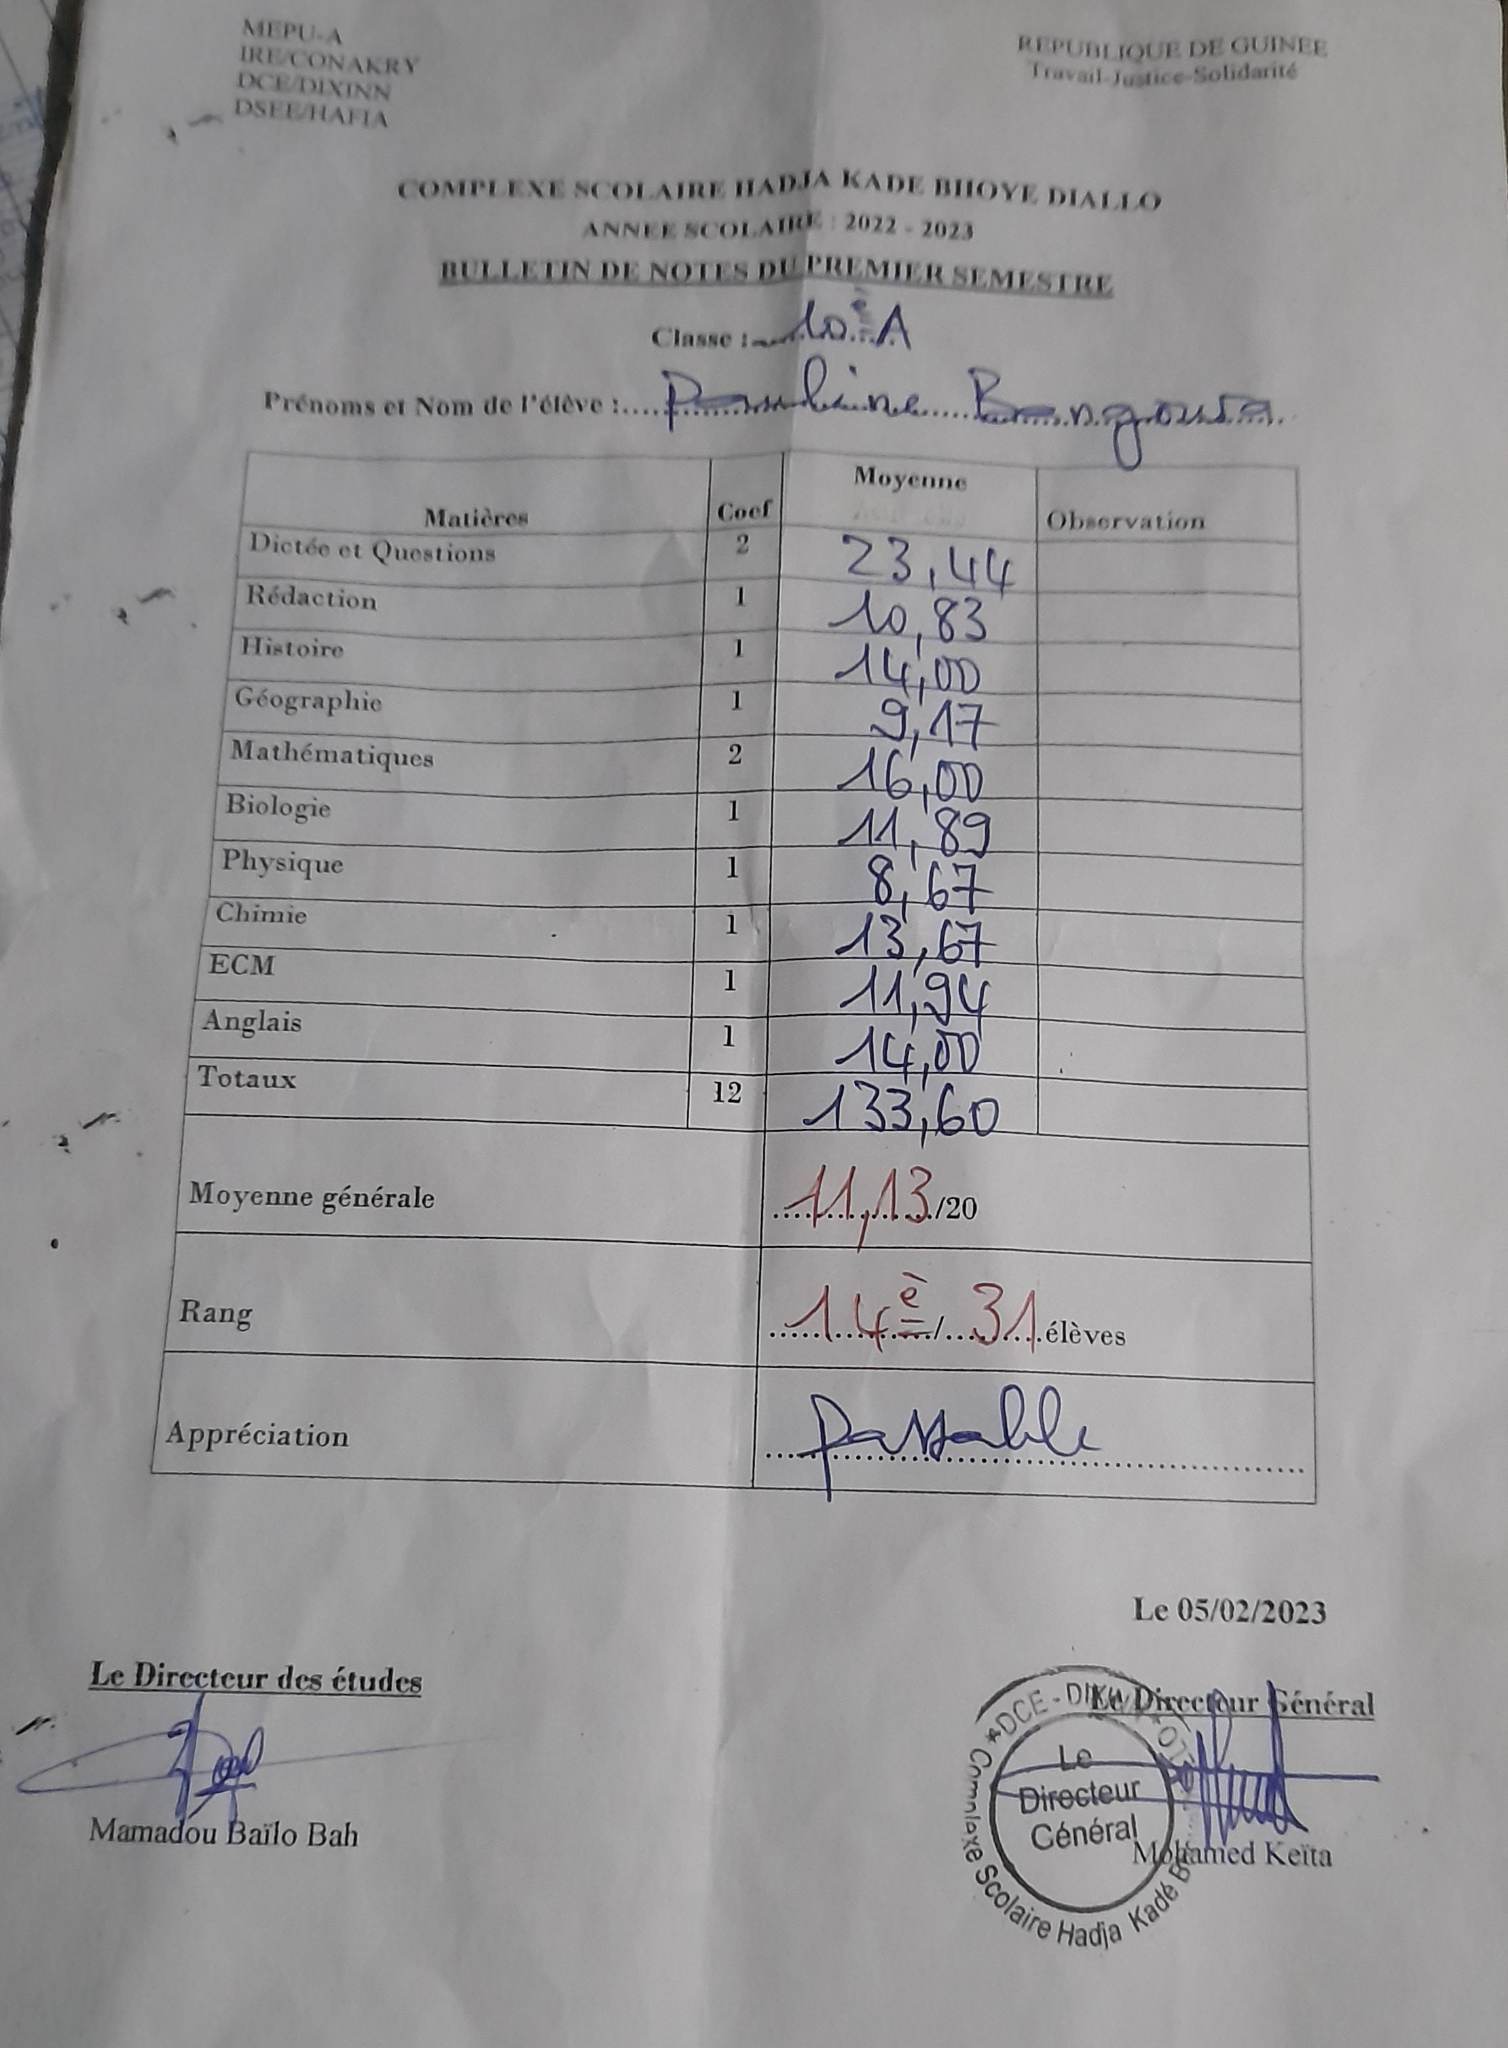 MEPU-A
IRE/CONAKRY
DCE/DIXINN
DSEE/HAFIA
REPUBLIQUE DE GUINEE
Travail-Justice-Solidarité
COMPLEXE SCOLAIRE HADJA KADE BHOYE DIALLO
ANNEE SCOLAIRE : 2022 - 2023
BULLETIN DE NOTES DU PREMIER SEMESTRE
Classe : 10è A
Prénoms et Nom de l'élève : Pauline Bangoura
Matières Coef Moyenne Observation
Dictée et Questions 2 23,44
Rédaction 1 10,83
Histoire 1 14,00
Géographie 1 9,17
Mathématiques 2 16,00
Biologie 1 11,89
Physique 1 8,67
Chimie 1 13,67
ECM 1 11,94
Anglais 1 14,00
Totaux 12 133,60
Moyenne générale 11,13/20
Rang 14è/31 élèves
Appréciation Passable
Le 05/02/2023
Le Directeur des études
Le Directeur Général
Mamadou Baïlo Bah
Mohamed Keïta
DCE-DIX
Le
Directeur
Général
Complexe Scolaire Hadja Kadé B